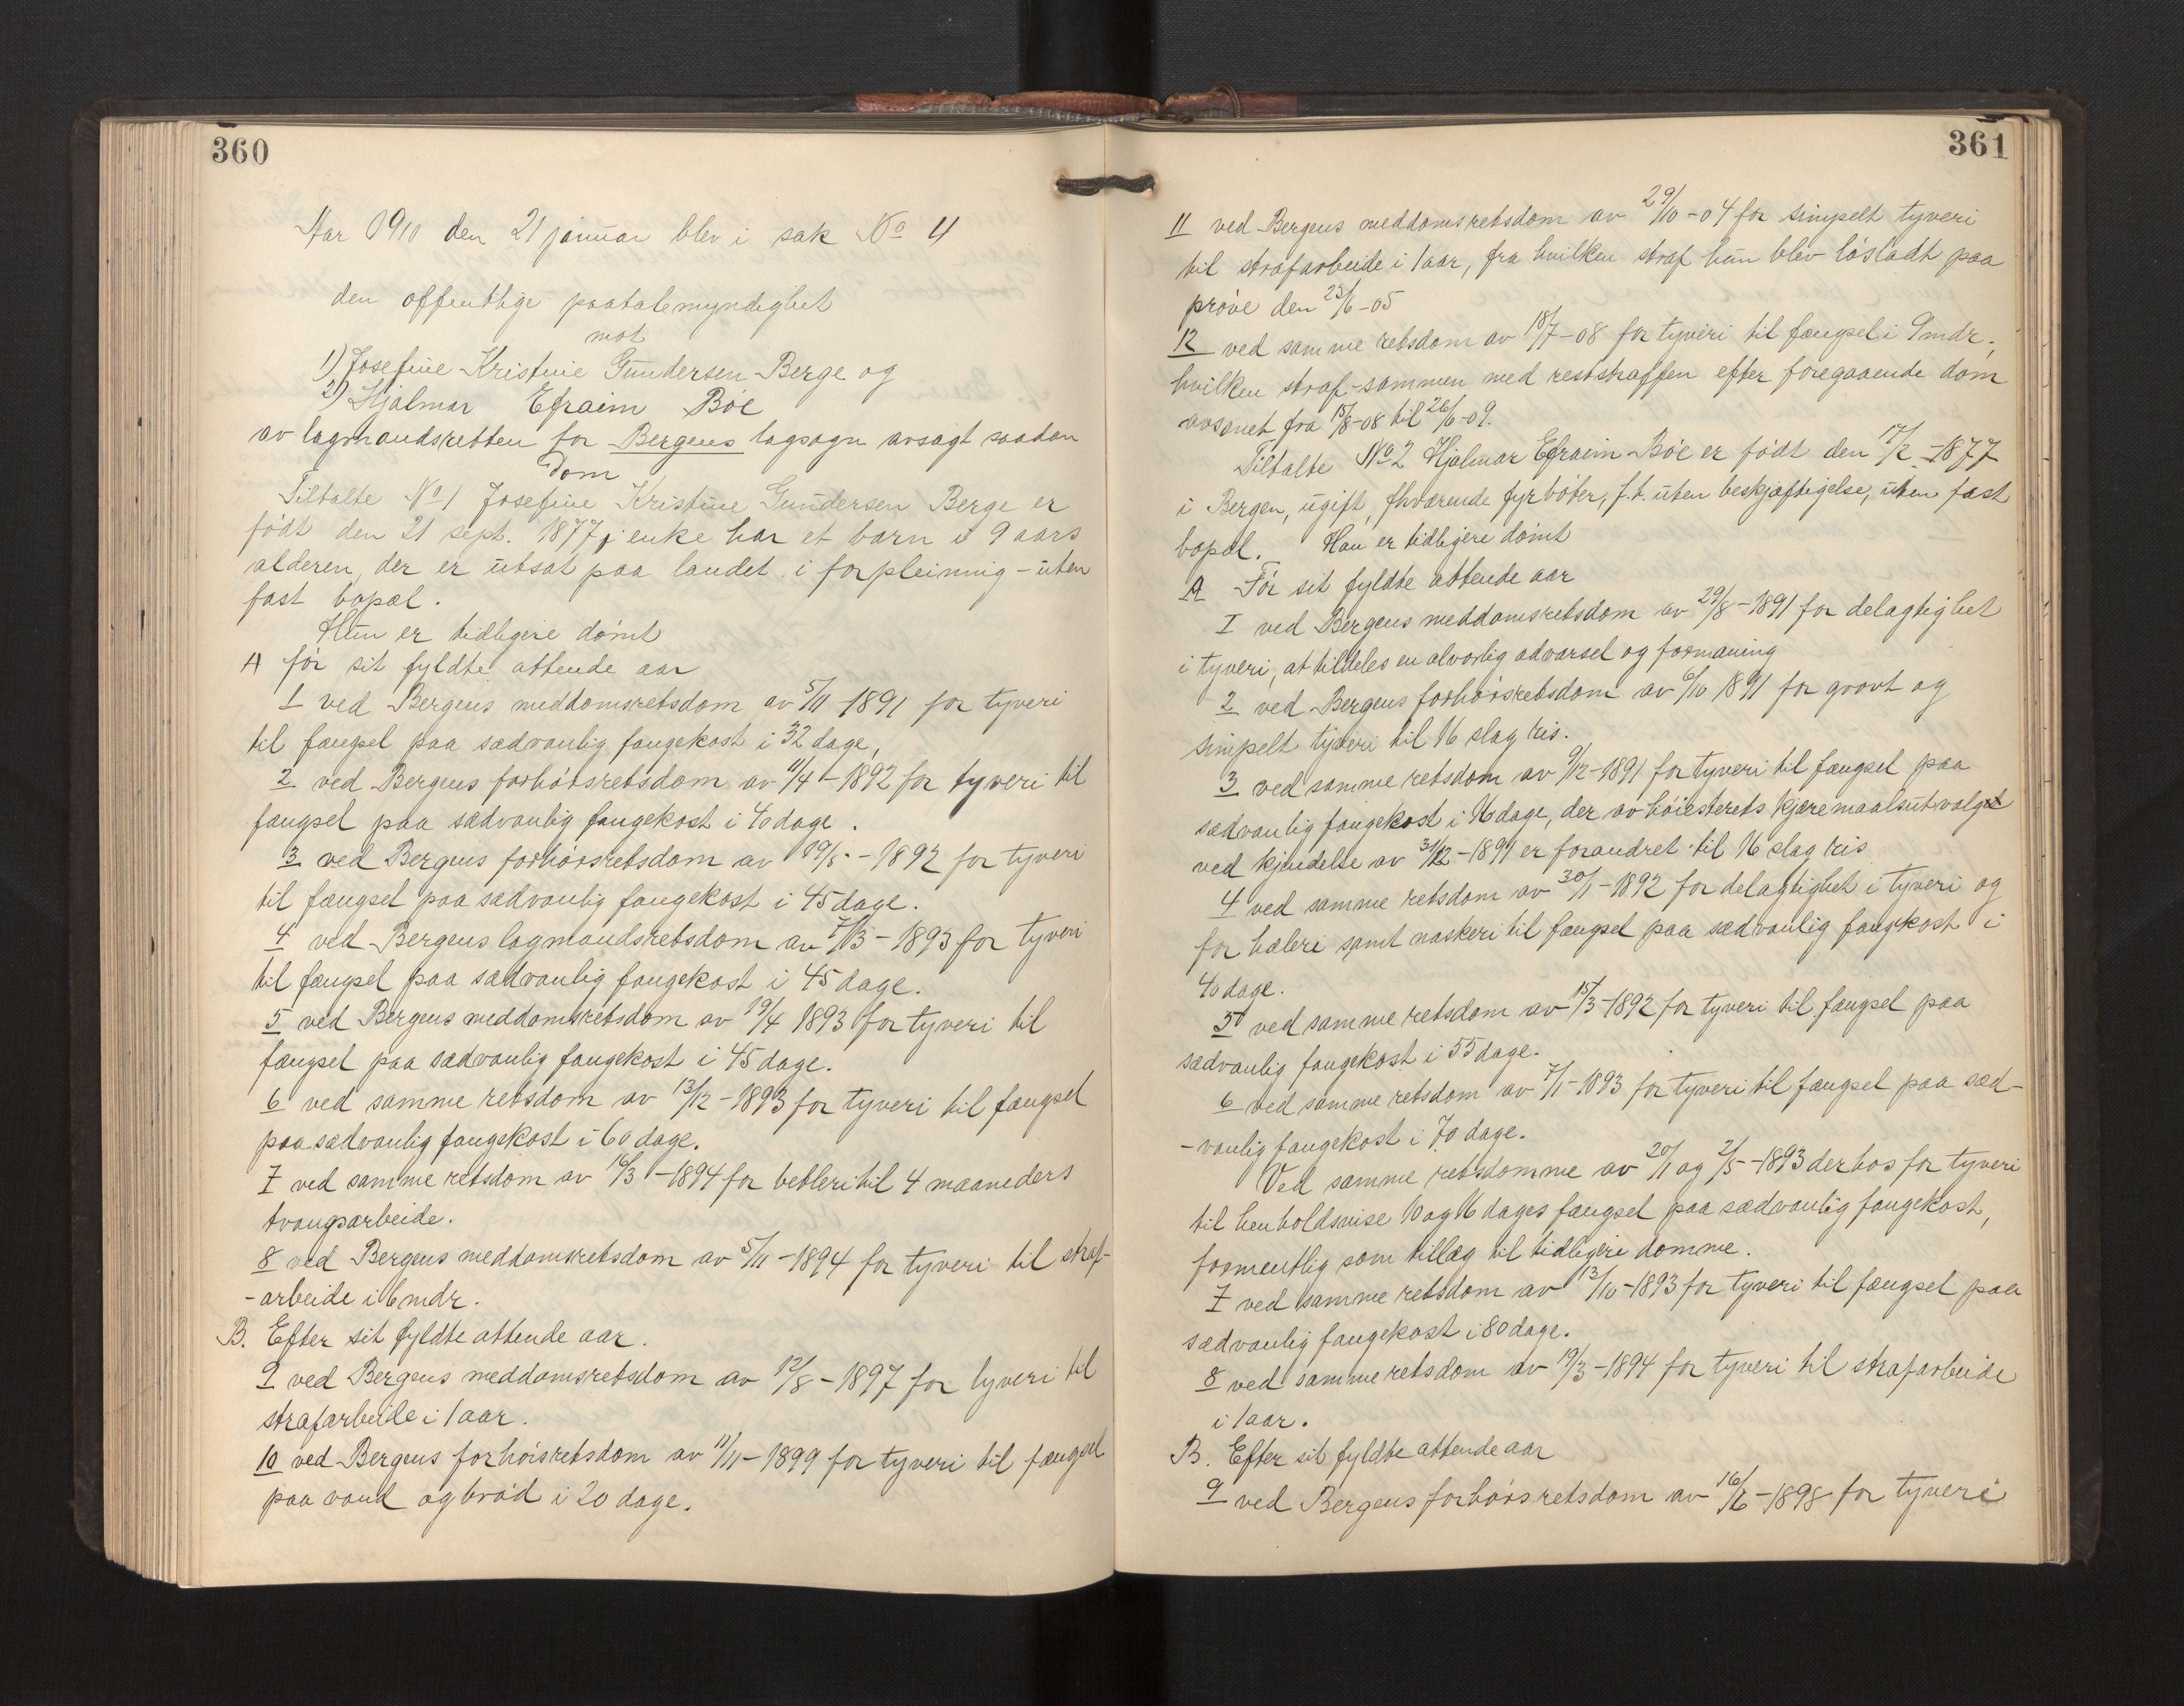 360
Aar 1910 den 21 januar blev i sak No 4
den offentlige paatalemyndighet
mot
1) Josefine Kristine Gundersen Berge og
2) Hjalmar Efraim Böe
av lagmandsretten for Bergens lagsogn avsagt saadan
Dom
Tiltalte No 1 Josefine Kristine Gundersen Berge er
född den 21 sept. 1877, enke har et barn i 9 aars
alderen, der er utsat paa landet i forpleining - uten
fast bopæl.
Hun er tidligere dømt
A før sit fyldte attende aar
1 ved Bergens meddomsretsdom av 5/11 1891 for tyveri
til fængsel paa sædvanlig fangekost i 32 dage,
2 ved Bergens forhørsretsdom av 11/4 - 1892 for tyveri til
fængsel paa sædvanlig fangekost i 40 dage.
3 ved Bergens forhørsretsdom av 19/5 - 1892 for tyveri
til fængsel paa sædvanlig fangekost i 45 dage.
4 ved Bergens lagmandsretsdom av 7/3 - 1893 for tyveri
til fængsel paa sædvanlig fangekost i 45 dage.
5 ved Bergens meddomsretsdom av 19/4 1893 for tyveri til
fængsel paa sædvanlig fangekost i 45 dage.
6 ved samme retsdom av 13/12 - 1893 for tyveri til fængsel
paa sædvanlig fangekost i 60 dage.
7 ved samme retsdom av 16/3 - 1894 for betleri til 4 maaneders
tvangsarbeide.
8 ved Bergens meddomsretsdom av 5/11 - 1894 for tyveri til straf-
-arbeide i 6 mdr.
B. Efter sit fyldte attende aar.
9 ved Bergens meddomsretsdom av 12/8 - 1897 for tyveri til
strafarbeide i 1 aar.
10 ved Bergens forhörsretsdom av 11/11 - 1899 for tyveri til fængsel
paa vand og brød i 20 dage.
361
11 ved Bergens meddomsretsdom av 29/10 - 04 for simpelt tyveri
til strafarbeide i 1 aar, fra hvilken straf hun blev løsladt paa
prøve den 23/6 - 05
12 ved samme retsdom av 18/7 - 08 for tyveri til fængsel i 9 mdr.,
hvilken straf - sammen med reststraffen efter foregaaende dom
avsonet fra 15/8 - 08 til 26/6 - 09.
Tiltalte No 2 Hjalmar Efraim Böe er född den 17/2 - 1877
i Bergen, ugift, fhværende fyrbøter, f.t. uten beskjæftigelse, uten fast
bopæl. Han er tidligere dømt
A Før sit fyldte attende aar
I ved Bergens meddomsretsdom av 29/8 - 1891 for delagtighet
i tyveri, at tildeles en alvorlig advarsel og formaning
2 ved Bergens forhørsretsdom av 6/10 1891 for grovt og
simpelt tyveri til 16 slag ris.
3 ved samme retsdom av 9/12 - 1891 for tyveri til fængsel paa
sædvanlig fangekost i 16 dage, der av höiesterets kjæremaalsutvalg
ved kjendelse av 31/12 - 1891 er forandret til 16 slag ris
4 ved samme retsdom av 30/1 - 1892 for delagtighet i tyveri og
for hæleri samt naskeri til fængsel paa sædvanlig fangekost i
40 dage.
5 ved samme retsdom av 15/3 - 1892 for tyveri til fængsel paa
sædvanlig fangekost i 55 dage.
6 ved samme retsdom av 7/1 - 1893 for tyveri til fængsel paa sæd-
-vanlig fangekost i 70 dage.
Ved samme retsdomme av 20/1 og 2/5 - 1893 derhos for tyveri
til henholdsvise 10 og 16 dages fængsel paa sædvanlig fangekost,
formentlig som tillæg til tidligere domme.
7 ved samme retsdom av 13/10 - 1893 for tyveri til fængsel paa
sædvanlig fangekost i 80 dage.
8 ved samme retsdom av 19/3 - 1894 for tyveri til strafarbeide
i 1 aar.
B. Efter sit fyldte attende aar
9 ved Bergens forhørsretsdom av 16/6 - 1898 for tyveri